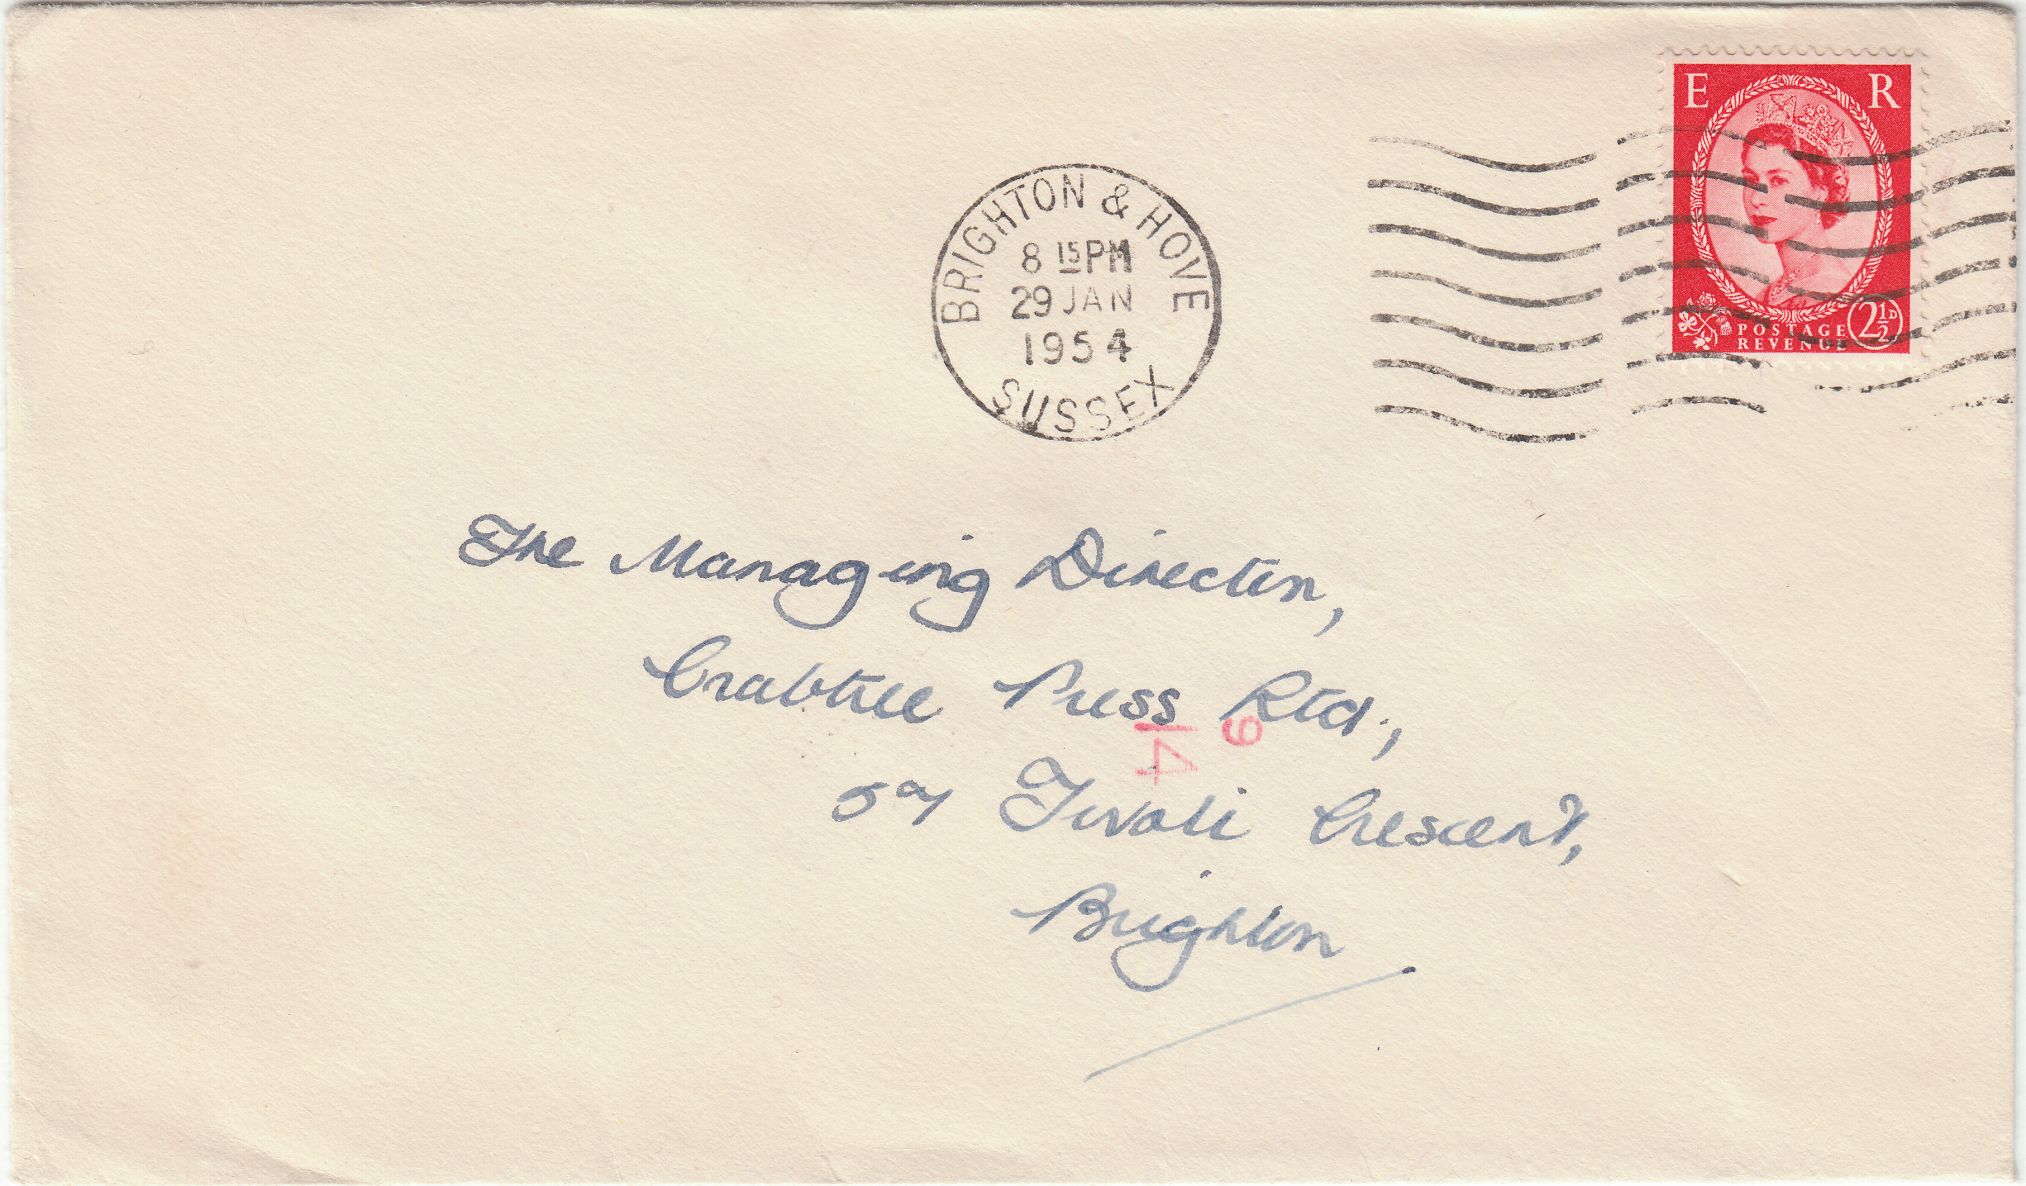 E R
POSTAGE
REVENUE
2½D
BRIGHTON & HOVE
8 15 PM
29 JAN
1954
SUSSEX
The Managing Director,
Crabtree Press Ltd.,
Tivoli Crescent,
Brighton
9
14